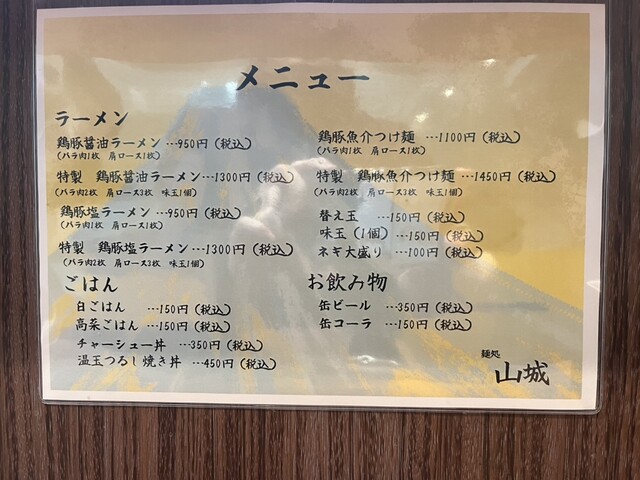 メニュー
ラーメン
鶏豚醤油ラーメン…950円(税込)
(バラ肉1枚 肩ロース1枚)
特製 鶏豚醤油ラーメン…1300円(税込)
(バラ肉2枚 肩ロース3枚 味玉1個)
鶏豚塩ラーメン…950円(税込)
(バラ肉1枚 肩ロース1枚)
特製 鶏豚塩ラーメン…1300円(税込)
(バラ肉2枚 肩ロース3枚 味玉1個)
鶏豚魚介つけ麺…1100円(税込)
(バラ肉1枚 肩ロース1枚)
特製 鶏豚魚介つけ麺…1450円(税込)
(バラ肉2枚 肩ロース3枚 味玉1個)
替え玉 …150円(税込)
味玉(1個)…150円(税込)
ネギ大盛り …100円(税込)
ごはん
白ごはん …150円(税込)
高菜ごはん …150円(税込)
チャーシュー丼 …350円(税込)
温玉つるし焼き丼 …450円(税込)
お飲み物
缶ビール …350円(税込)
缶コーラ …150円(税込)
麺処
山城